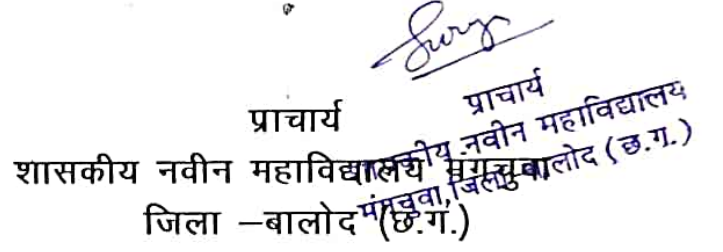 प्राचार्य
शासकीय नवीन महाविद्यालय मंगचुवा
जिला –बालोद (छ.ग.)
प्राचार्य
शासकीय नवीन महाविद्यालय
मंगचुवा, जिला-बालोद (छ.ग.)